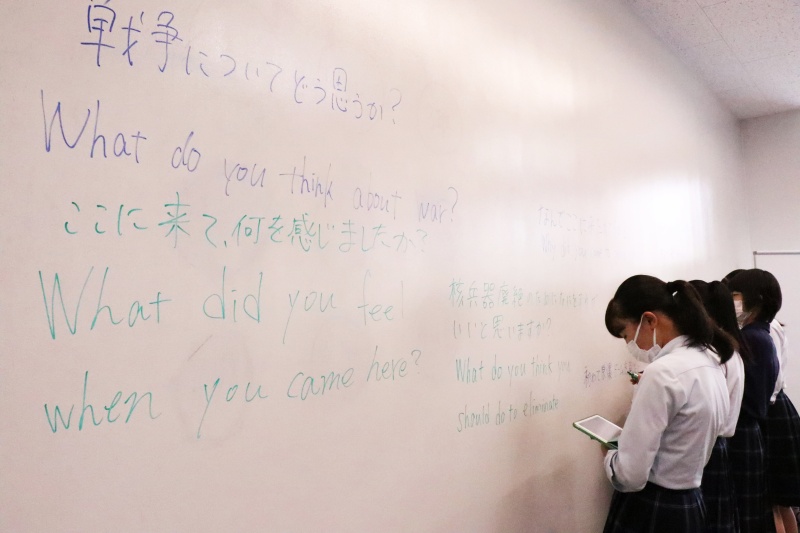 戦争についてどう思うか?
What do you think about war?
ここに来て、何を感じましたか?
What did you feel
when you came here?
核兵器廃絶のために
いいと思いますか?
What do you think you
should do to eliminate